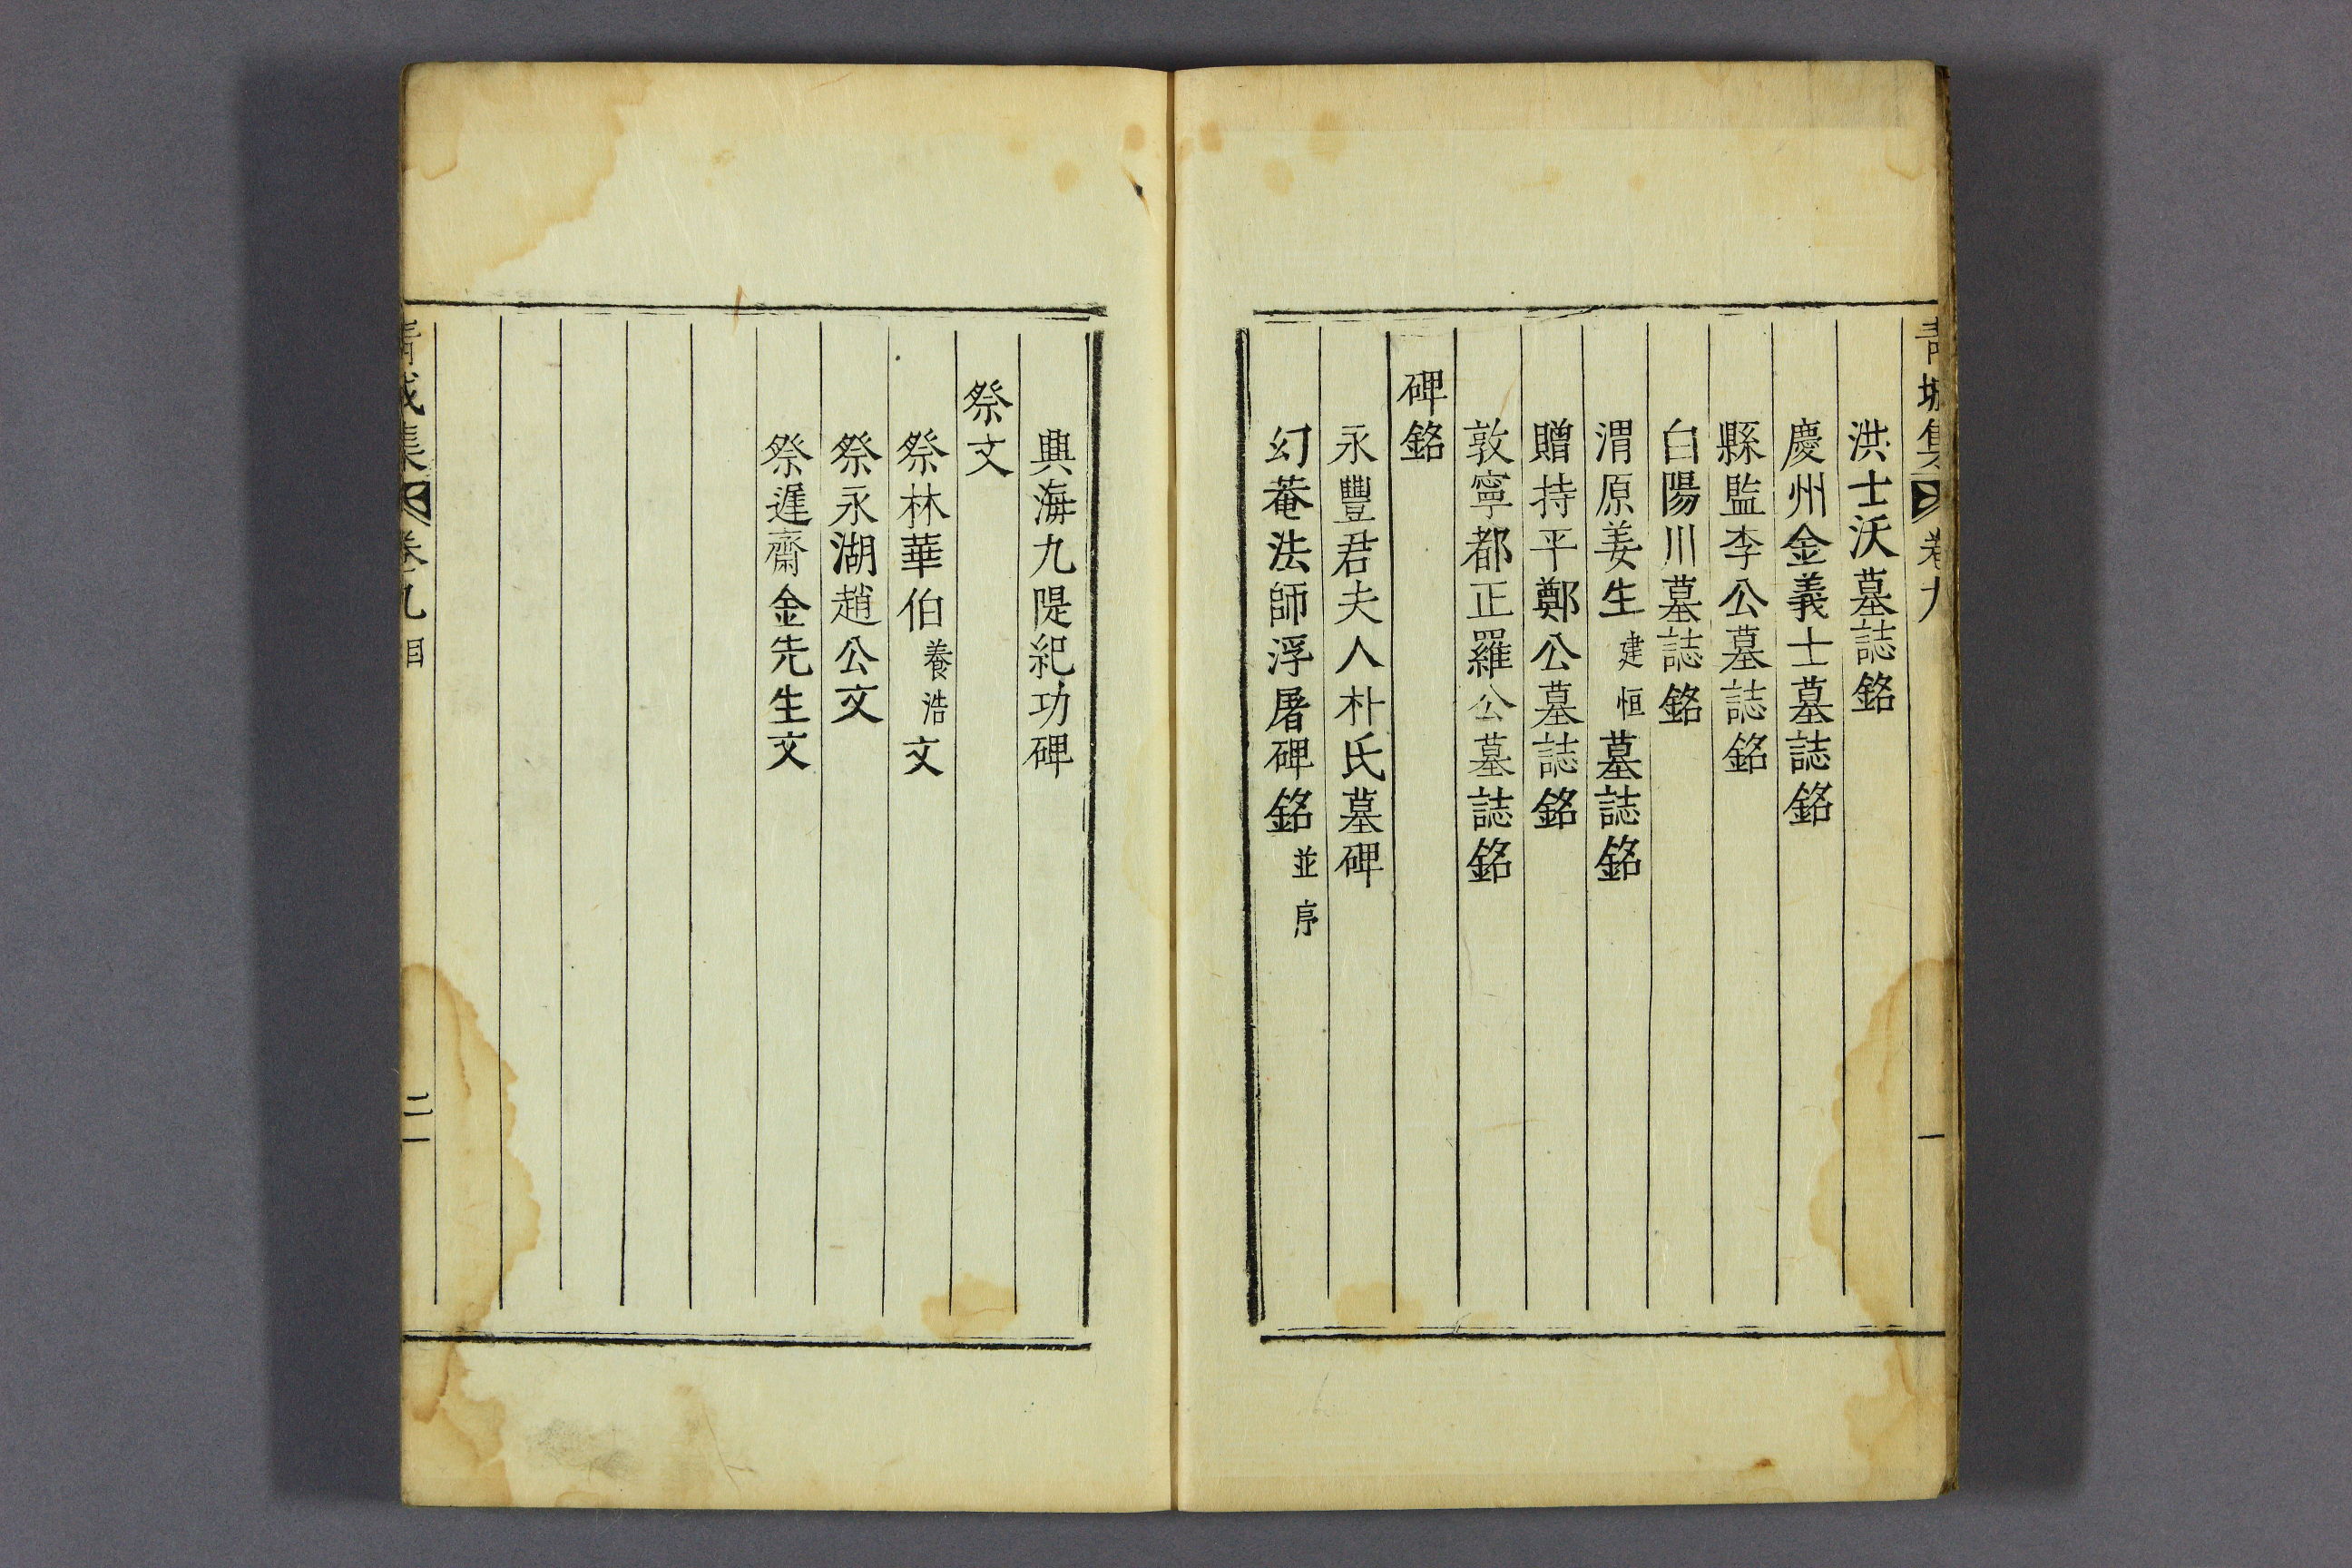 青城集 卷九 一
洪士沃墓誌銘
慶州金義士墓誌銘
縣監李公墓誌銘
白陽川墓誌銘
渭原姜生建恒墓誌銘
贈持平鄭公墓誌銘
敦寧都正羅公墓誌銘
碑銘
永豐君夫人朴氏墓碑
幻菴法師浮屠碑銘並序
興海九隄紀功碑
祭文
祭林華伯養浩文
祭永湖趙公文
祭遲齋金先生文
青城集 卷九目 二